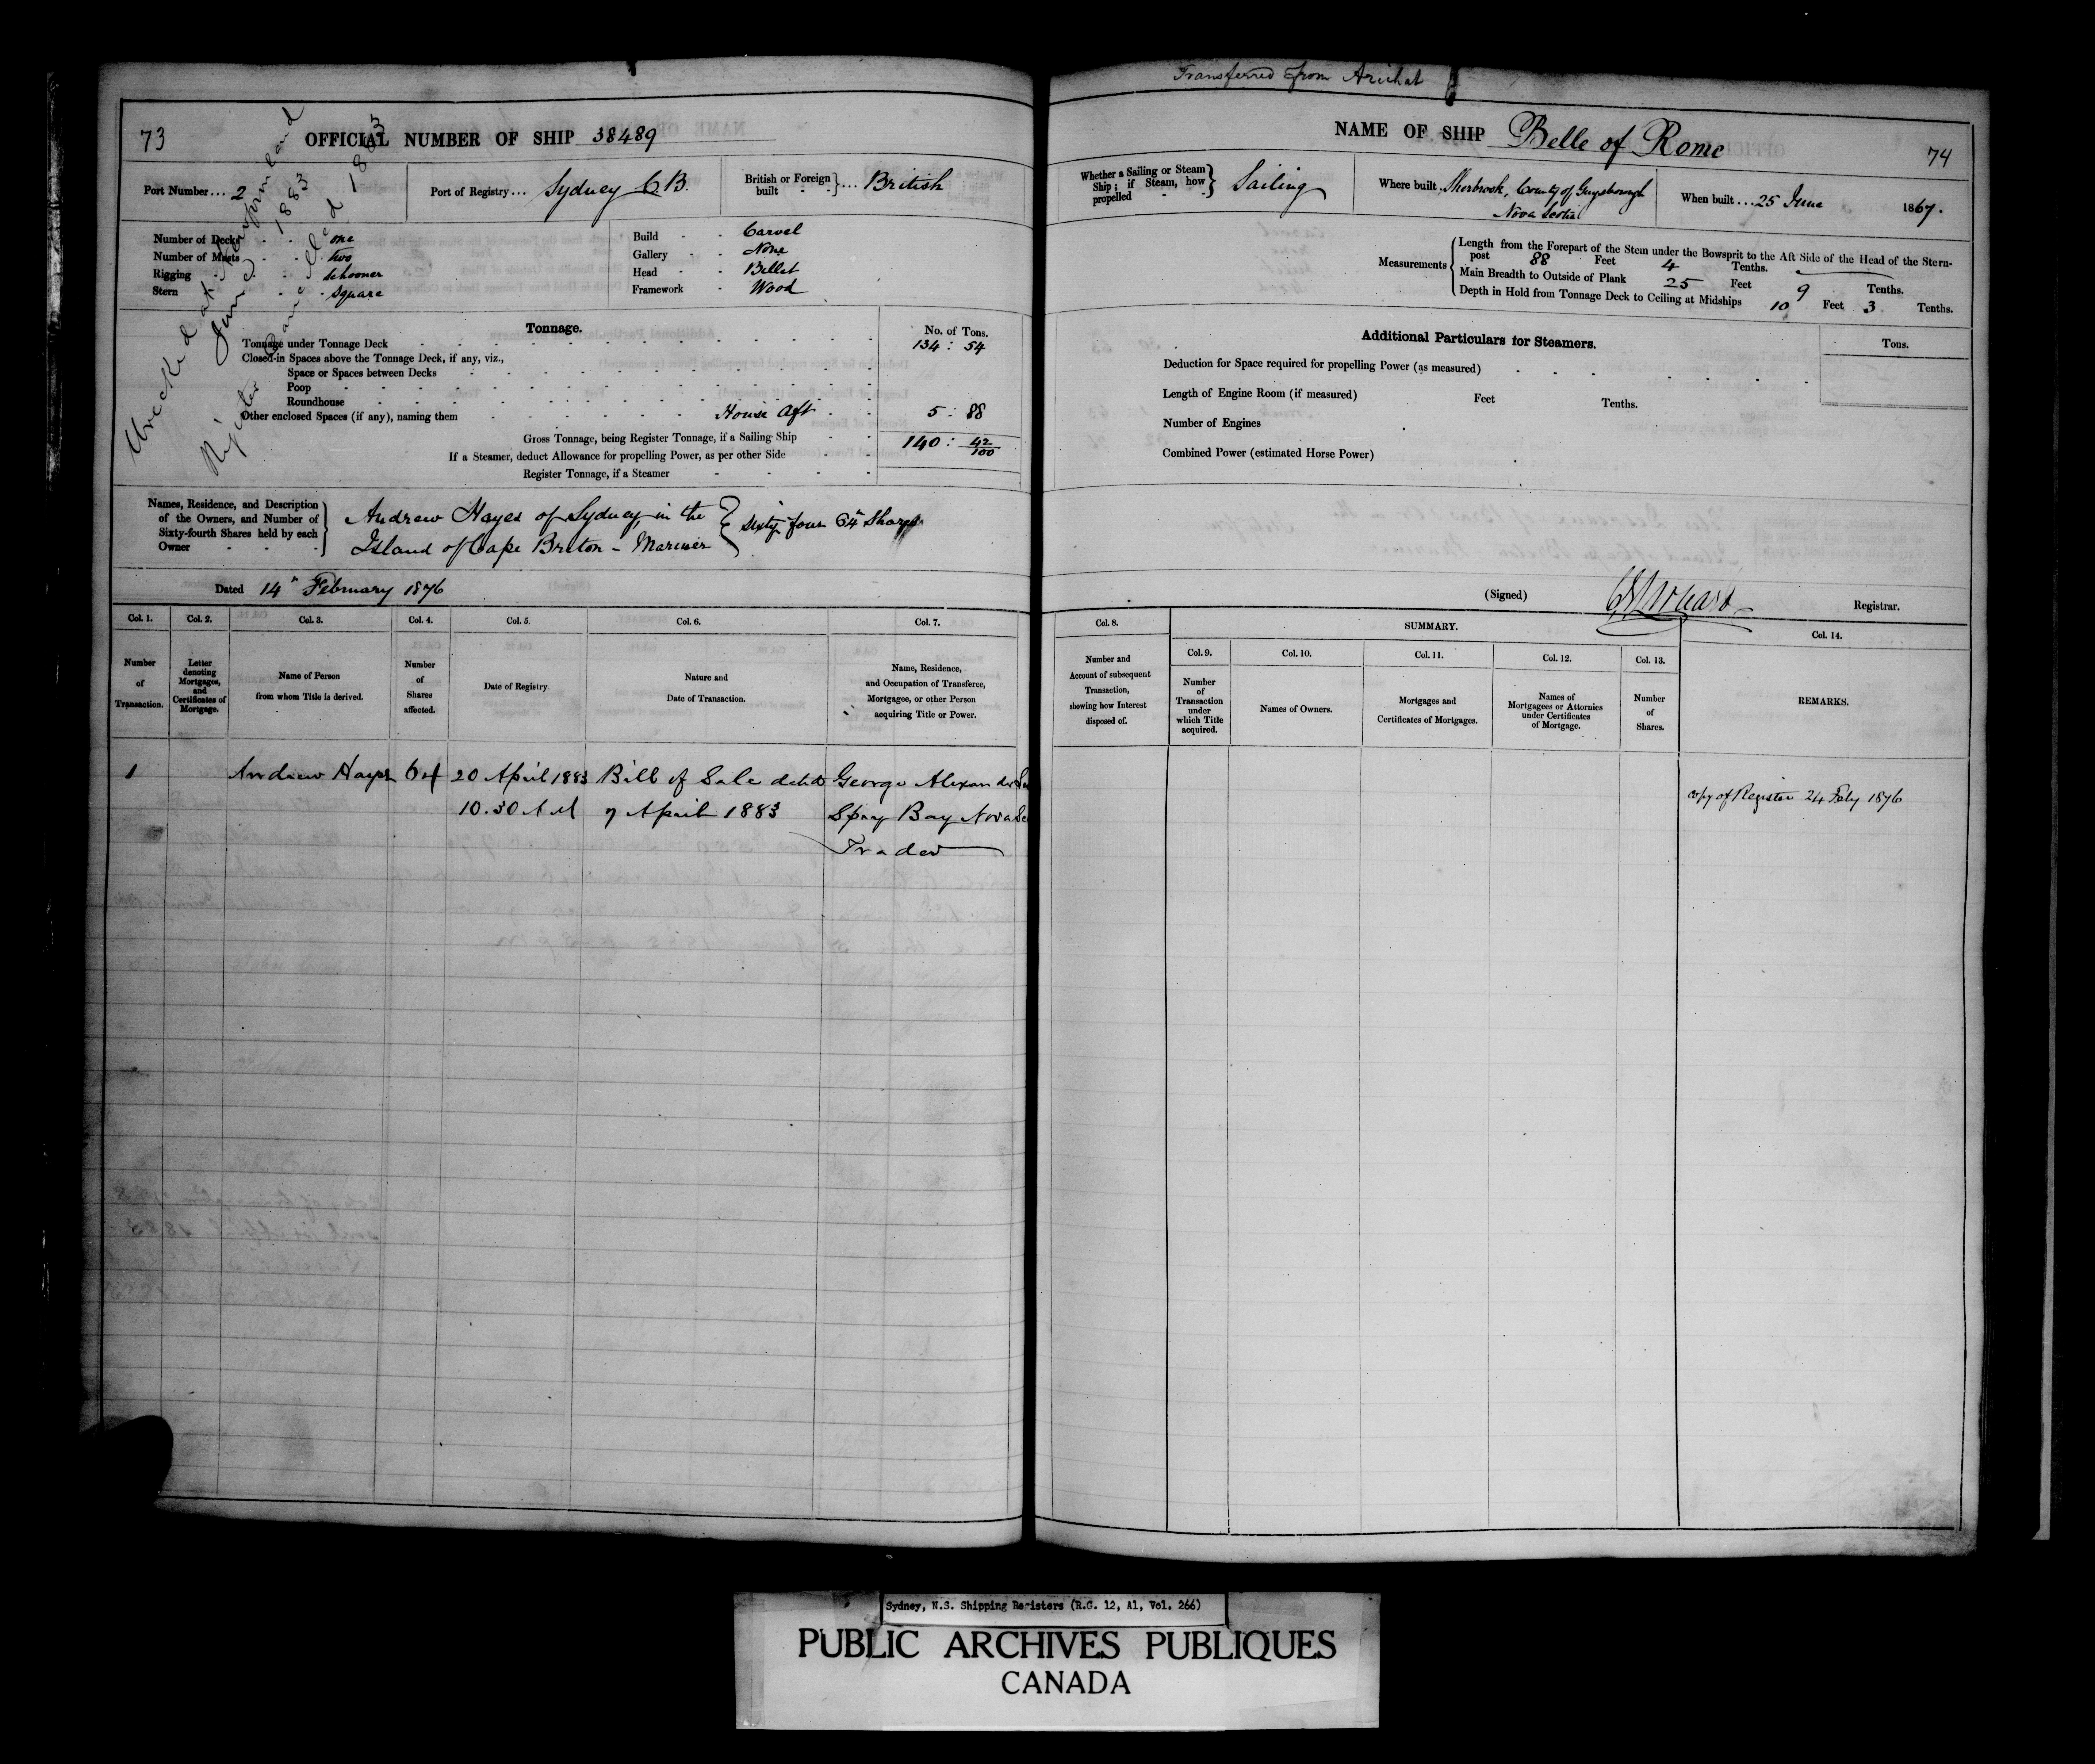 73
OFFICIAL NUMBER OF SHIP 38489
Wrecked at Newfoundland
June 1883
Register Cancelled 1883
Port Number... 2
Port of Registry... Sydney C B.
British or Foreign built }... British
Number of Decks - - one
Number of Masts - - two
Rigging - - schooner
Stern - - square
Build - - Carvel
Gallery - - None
Head - - Billet
Framework - Wood
Tonnage.
No. of Tons.
Tonnage under Tonnage Deck 134 : 54
Closed-in Spaces above the Tonnage Deck, if any, viz.,
Space or Spaces between Decks
Poop
Roundhouse
Other enclosed Spaces (if any), naming them House Aft 5 : 88
Gross Tonnage, being Register Tonnage, if a Sailing Ship 140 : 42/100
If a Steamer, deduct Allowance for propelling Power, as per other Side
Register Tonnage, if a Steamer
Names, Residence, and Description of the Owners, and Number of Sixty-fourth Shares held by each Owner
Andrew Hayes of Sydney, in the } Sixty four 64th Shares
Island of Cape Breton - Mariner
Dated 14th February 1876
Col. 1. Col. 2. Col. 3. Col. 4. Col. 5. Col. 6. Col. 7.
Number of Transaction.
Letter denoting Mortgages, and Certificates of Mortgage.
Name of Person from whom Title is derived.
Number of Shares affected.
Date of Registry.
Nature and Date of Transaction.
Name, Residence, and Occupation of Transferee, Mortgagee, or other Person acquiring Title or Power.
1 Andrew Hayes 64 20 April 1883 Bill of Sale dated George Alexander
10.30 A M 7 April 1883 Spry Bay Nova
Trader
Transferred from Arichat
NAME OF SHIP Belle of Rome
74
Whether a Sailing or Steam Ship; if Steam, how propelled } Sailing
Where built, Sherbrook, County of Guysborough
Nova Scotia
When built ... 25 June 1867.
Measurements
Length from the Forepart of the Stem under the Bowsprit to the Aft Side of the Head of the Stern-
post 88 Feet 4 Tenths.
Main Breadth to Outside of Plank 25 Feet 9 Tenths.
Depth in Hold from Tonnage Deck to Ceiling at Midships 10 Feet 3 Tenths.
Additional Particulars for Steamers.
Tons.
Deduction for Space required for propelling Power (as measured)
Length of Engine Room (if measured) Feet Tenths.
Number of Engines
Combined Power (estimated Horse Power)
(Signed) Registrar.
Col. 8.
Number and Account of subsequent Transaction, showing how Interest disposed of.
SUMMARY.
Col. 9. Col. 10. Col. 11. Col. 12. Col. 13. Col. 14.
Number of Transaction under which Title acquired.
Names of Owners.
Mortgages and Certificates of Mortgages.
Names of Mortgagees or Attornies under Certificates of Mortgage.
Number of Shares.
REMARKS.
Copy of Register 24 Feby 1876
Sydney, N.S. Shipping Registers (R.G. 12, A1, Vol. 266)
PUBLIC ARCHIVES PUBLIQUES
CANADA